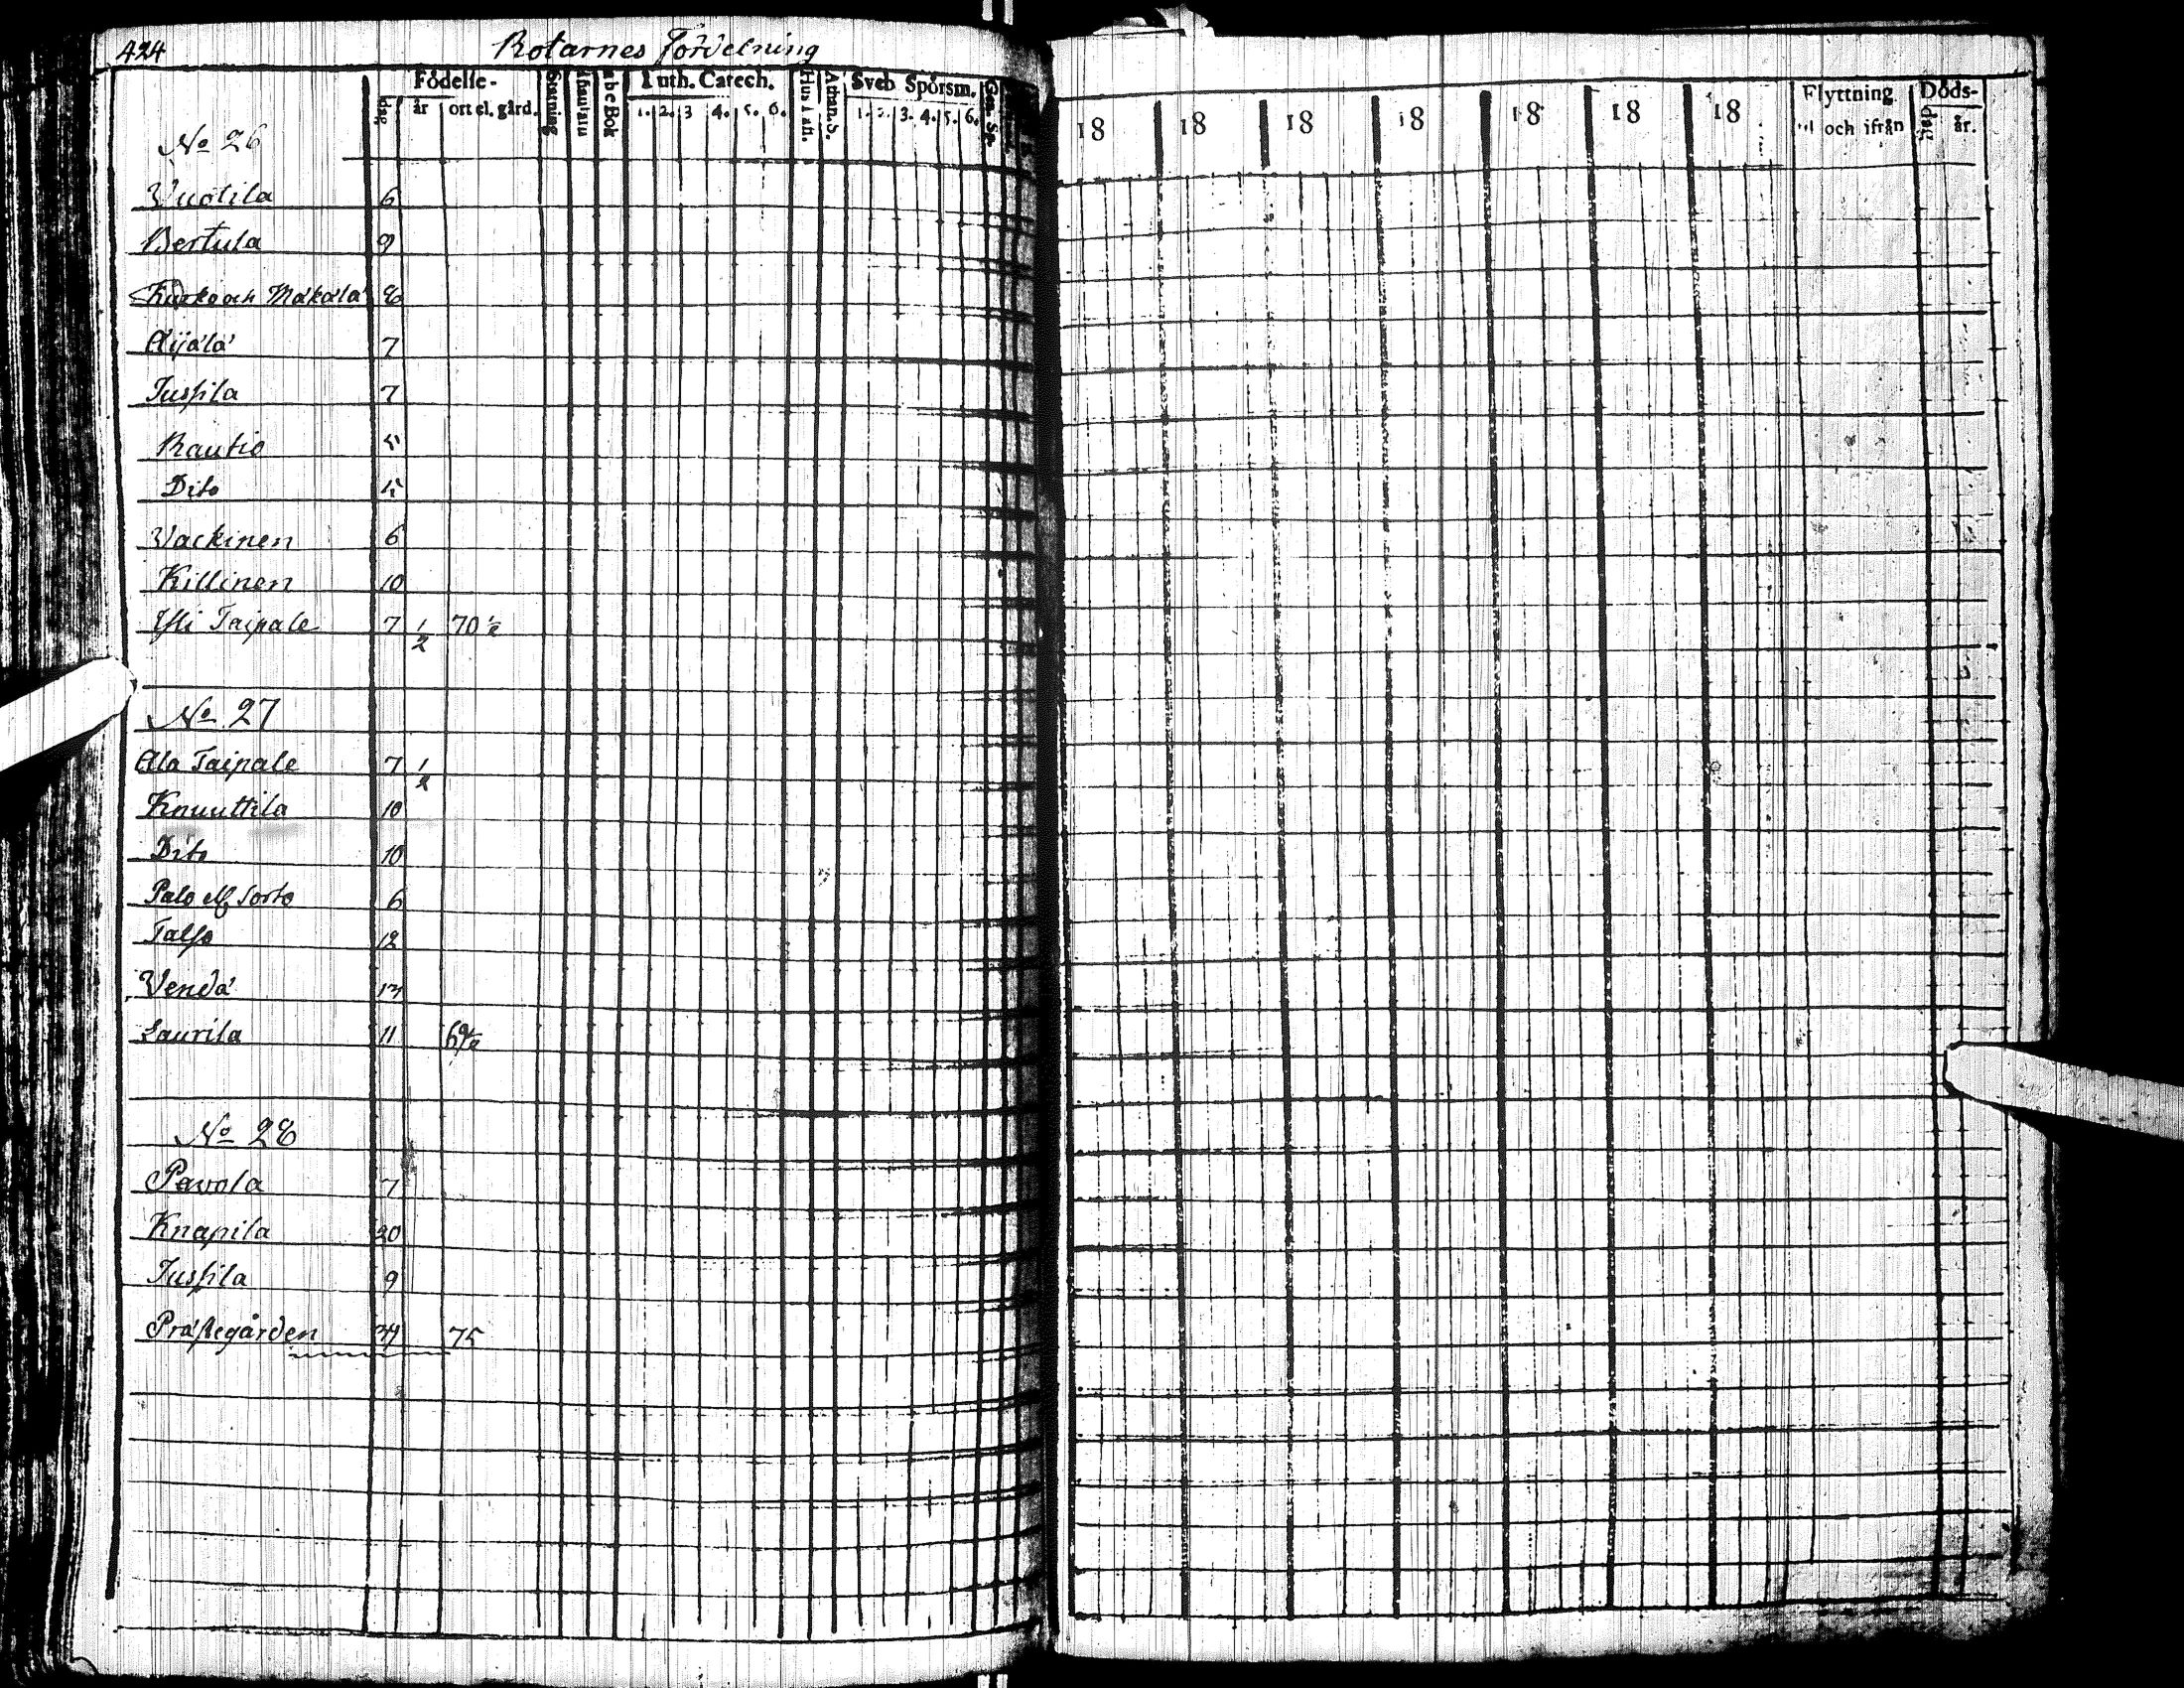 424 Rotarnes Fördelning
Födelse-
dag år ort el. gård.
abc Bok
Luth. Catech.
1. 2. 3 4. 5. 6.
Hustafl.
Athan. S.
Sveb Spörsm.
1. 2. 3. 4. 5. 6.
18 18 18 18 18 18 18
Flyttning
till och ifrån
Döds-
dag år.
No 26
Wuotila 6
Bertula 9
Kurko och Mäkälä 8
Äijälä 7
Jussila 7
Rautio 5
Dito 5
Vackinen 6
Killinen 10
Yli Taipale 7 1/2 70 1/2
No 27
Ala Taipale 7 1/2
Knuuttila 10
Dito 10
Palo ell Sorto 6
Talso 12
Vendä 13
Laurila 11 69 1/2
No 28
Pavola 7
Knapila 20
Jussila 9
Prästegården 34 75